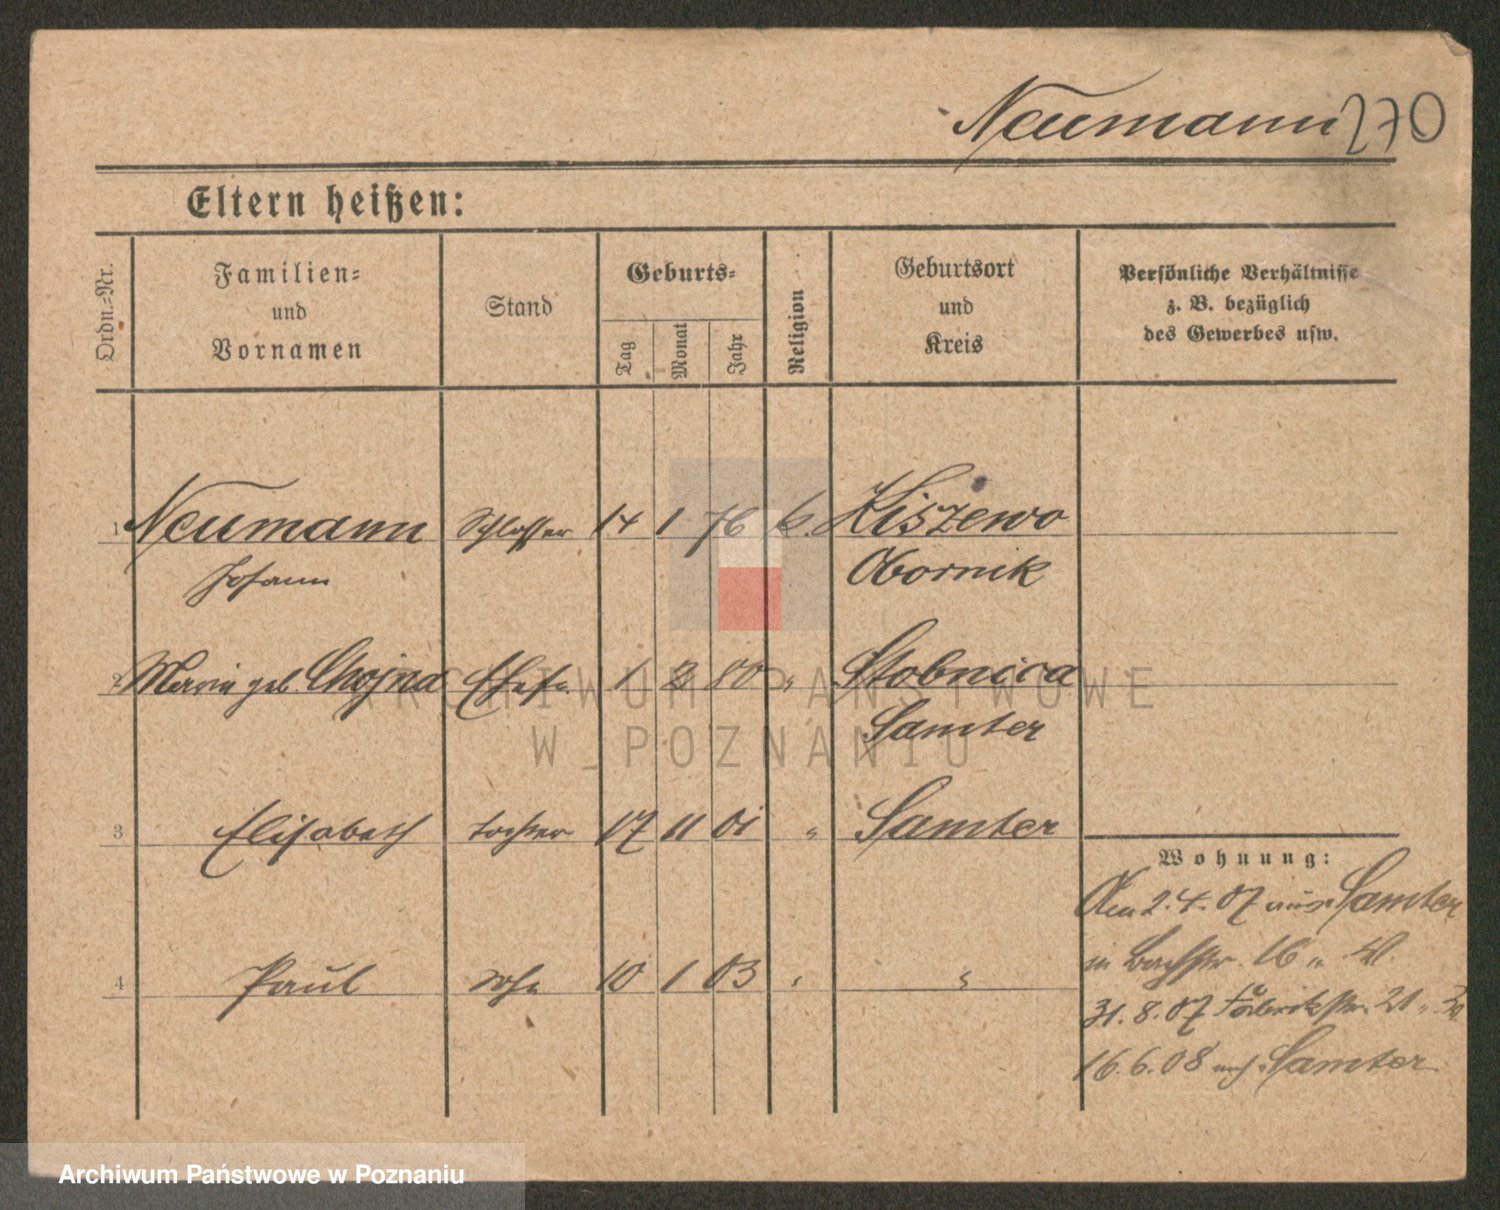 Neumann 270
Eltern heißen:
Ordn.=Nr.
Familien=
und
Vornamen
Stand
Geburts=
Tag
Monat
Jahr
Religion
Geburtsort
und
Kreis
Persönliche Verhältnisse
z. B. bezüglich
des Gewerbes usw.
1 Neumann Schlosser 14 1 76 k. Kiszewo
Johann Obornik
2 Maria geb. Chojna Ehefr. 1 2 80 " Stobnica
Samter
3 Elisabeth Tochter 17 11 01 " Samter
Wohnung:
Am 2.4.07 aus Samter
in Bachstr. 16 "
4 Paul Sohn 10 1 03 " "
31.8.07 Fabrikstr. 21 "
16.6.08 nach Samter
ARCHIWUM PAŃSTWOWE
W POZNANIU
Archiwum Państwowe w Poznaniu